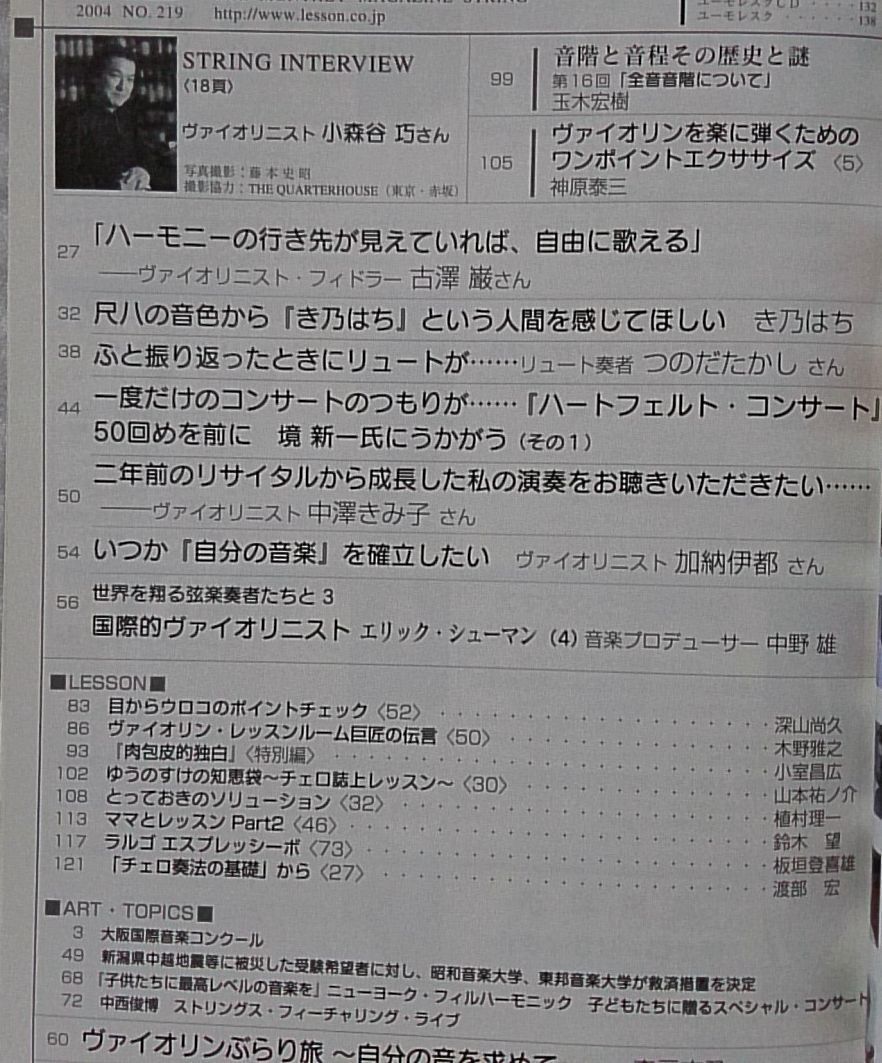 2004 NO. 219 http://www.lesson.co.jp
ユーモレスクCD ・・・・ 132
ユーモレスク ・・・・・・ 138
STRING INTERVIEW
〈18頁〉
ヴァイオリニスト 小森谷 巧さん
写真撮影：藤本史昭
撮影協力：THE QUARTERHOUSE（東京・赤坂）
99 音階と音程その歴史と謎
第16回「全音音階について」
玉木宏樹
105 ヴァイオリンを楽に弾くための
ワンポイントエクササイズ 〈5〉
神原泰三
27 「ハーモニーの行き先が見えていれば、自由に歌える」
──ヴァイオリニスト・フィドラー 古澤 巌さん
32 尺八の音色から『き乃はち』という人間を感じてほしい き乃はち
38 ふと振り返ったときにリュートが……リュート奏者 つのだたかし さん
44 一度だけのコンサートのつもりが……『ハートフェルト・コンサート』
50回めを前に 境 新一氏にうかがう（その1）
50 二年前のリサイタルから成長した私の演奏をお聴きいただきたい……
──ヴァイオリニスト 中澤きみ子 さん
54 いつか『自分の音楽』を確立したい ヴァイオリニスト 加納伊都 さん
56 世界を翔る弦楽奏者たちと 3
国際的ヴァイオリニスト エリック・シューマン（4）音楽プロデューサー 中野 雄
■LESSON■
83 目からウロコのポイントチェック〈52〉 深山尚久
86 ヴァイオリン・レッスンルーム巨匠の伝言〈50〉 木野雅之
93 『肉包皮的独白』〈特別編〉 小室昌広
102 ゆうのすけの知恵袋〜チェロ誌上レッスン〜〈30〉 山本祐ノ介
108 とっておきのソリューション〈32〉 植村理一
113 ママとレッスン Part2〈46〉 鈴木 望
117 ラルゴ エスプレッシーボ〈73〉 板垣登喜雄
121 「チェロ奏法の基礎」から〈27〉 渡部 宏
■ART・TOPICS■
3 大阪国際音楽コンクール
49 新潟県中越地震等に被災した受験希望者に対し、昭和音楽大学、東邦音楽大学が救済措置を決定
68 「子供たちに最高レベルの音楽を」ニューヨーク・フィルハーモニック 子どもたちに贈るスペシャル・コンサート
72 中西俊博 ストリングス・フィーチャリング・ライブ
60 ヴァイオリンぶらり旅 〜自分の音を求めて